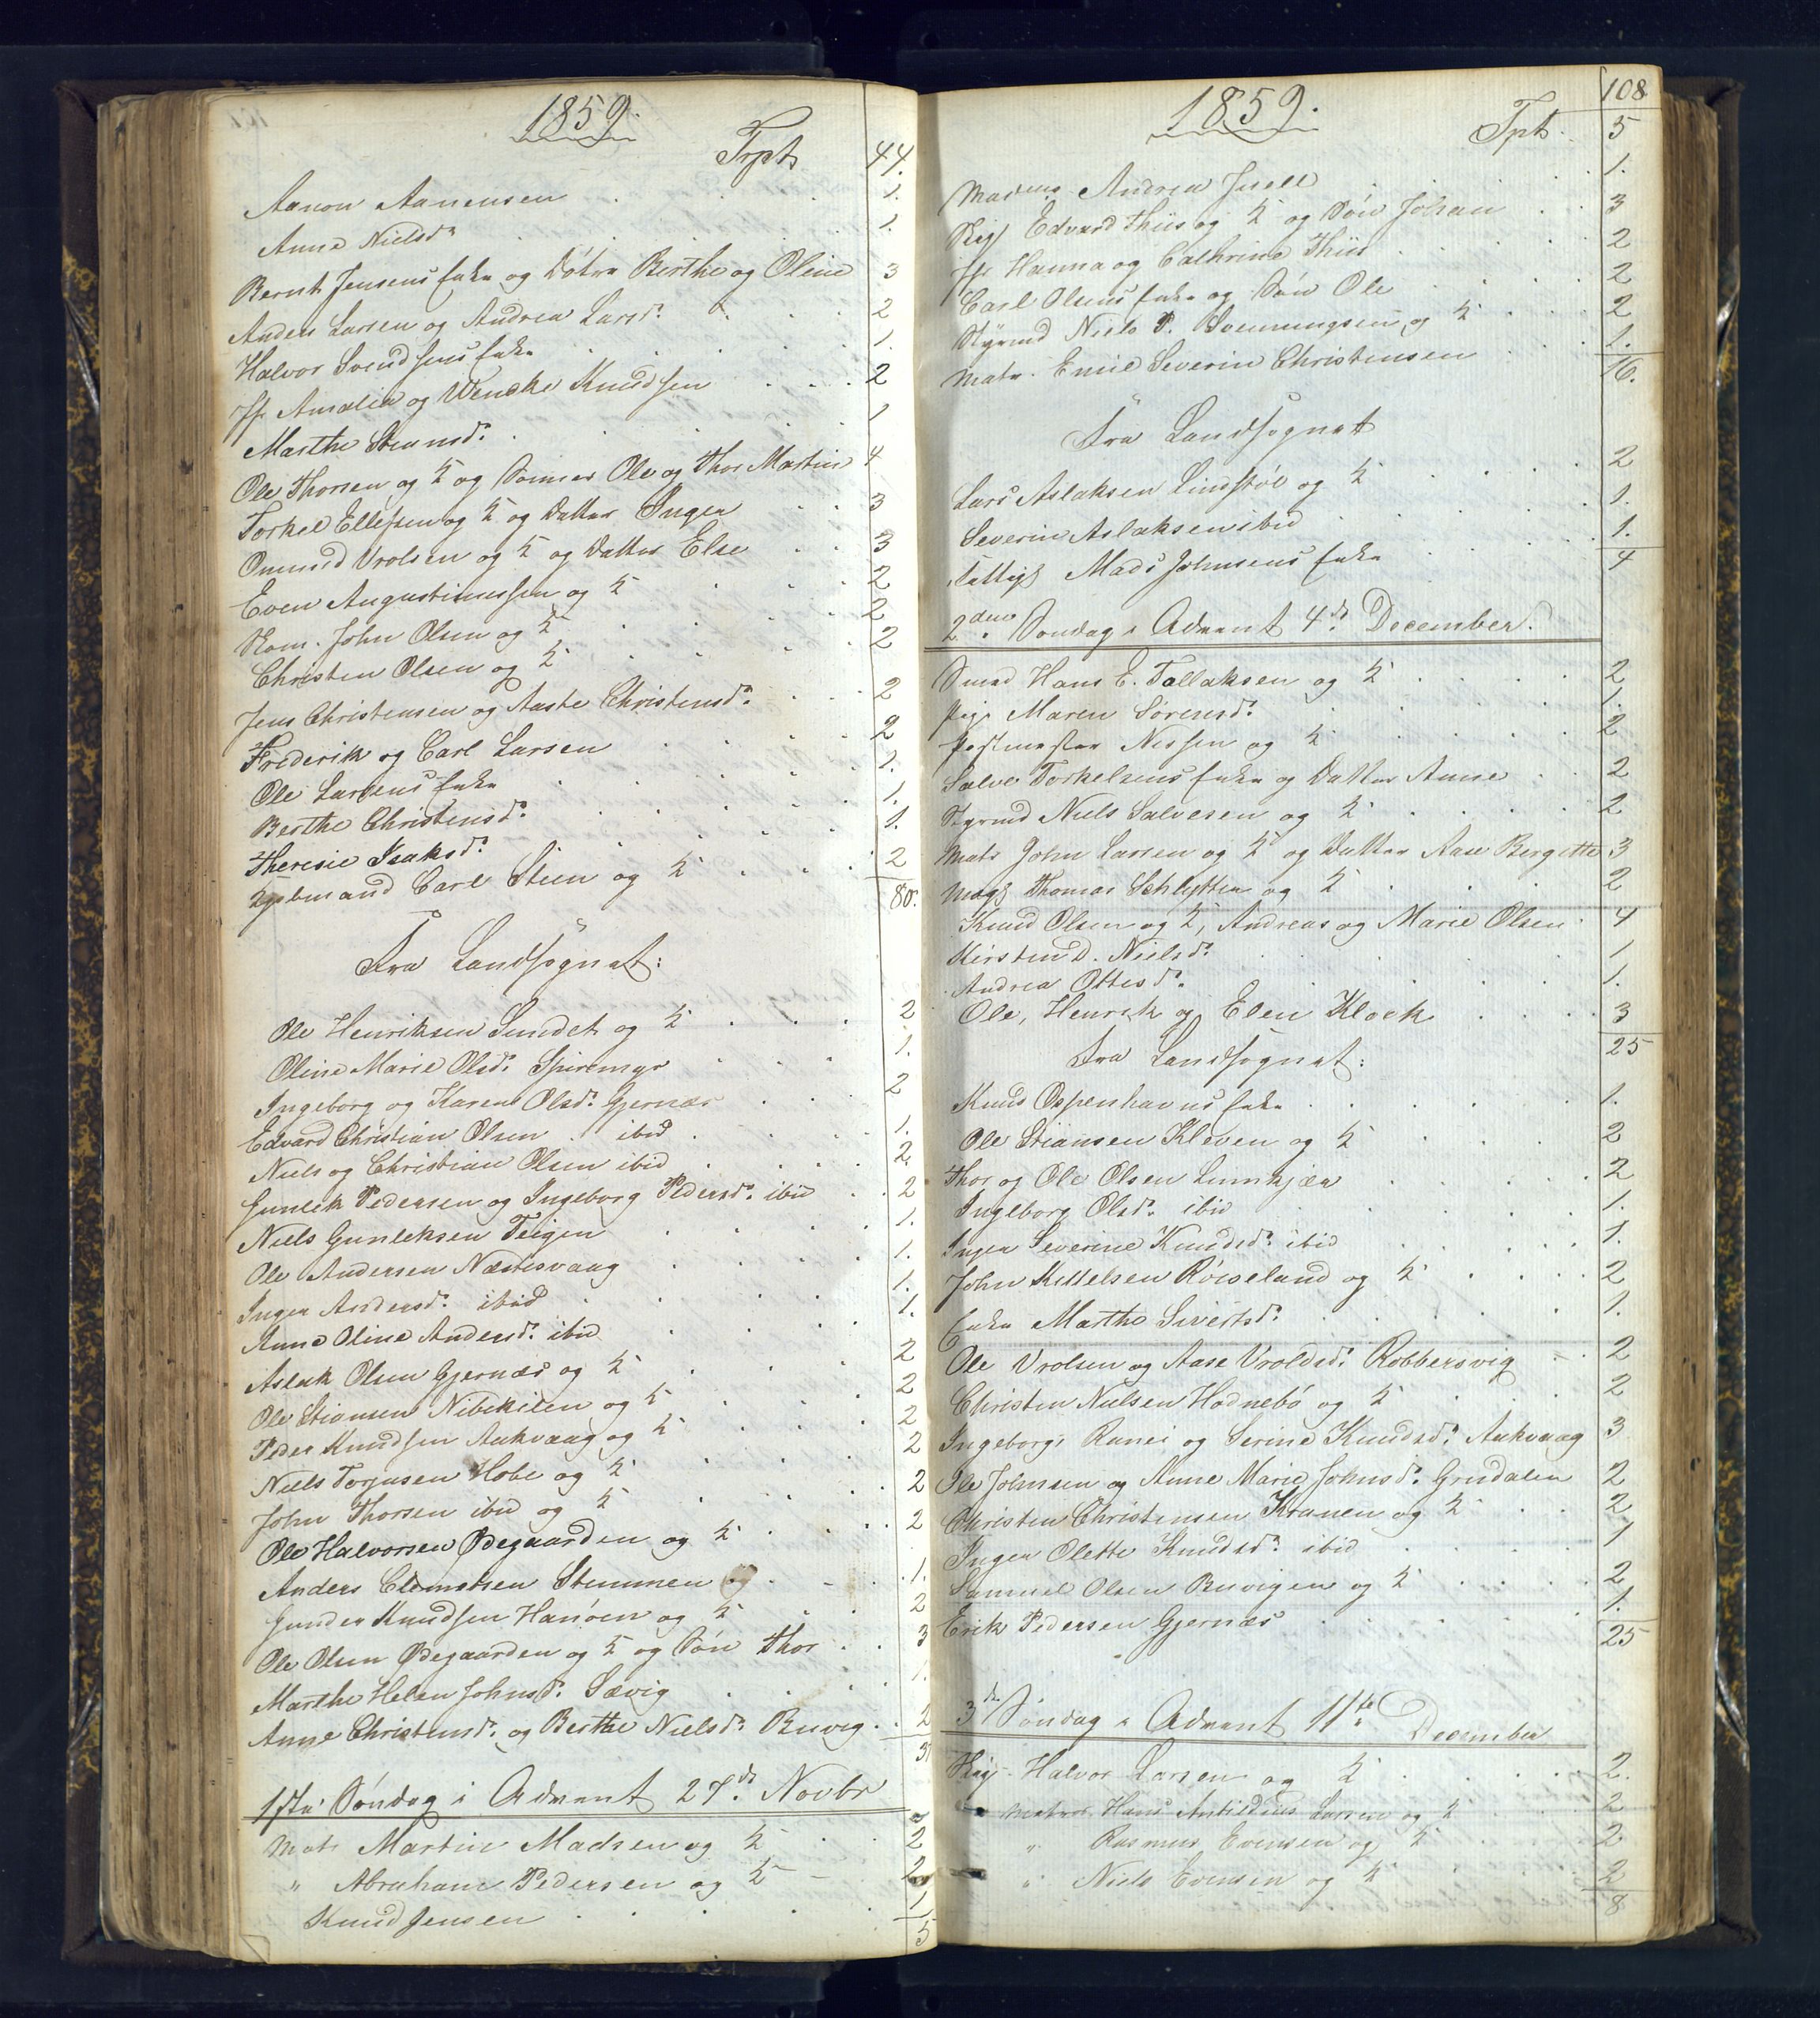 1859.
Trpt 44.
Aanon Aanensen 1.
Anne Nielsd. 1.
Bernt Jensens Enke og Døtre Berthe og Oline 3
Anders Larsen og Andrea Larsd. 2
Halvor Svendsens Enke 1.
Jfr Amalia og Wencke Knudsen 2
Marthe Stiansd. 1
Ole Thorsen og K og Sønner Ole og Thor Martin 4
Torkel Ellefsen og K og Datter Inger 3
Omund Vrolsen og K og Datter Else 3
Even Augustinussen og K 2
John Olsen og K 2
Christen Olsen og K 2
Jens Christensen og Aaste Christensd. 2
Frederik og Carl Larsen 2
Ole Larsens Enke 1.
Berthe Christensd. 1.
Theresie Isaksd. 1.
Kjøbmand Carl Steen og K 2
80.
Fra Landsognet:
Ole Henriksen Sundet og K 2
Oline Marie Olsd. Spiremyr 1.
Ingeborg og Karen Olsd. Gjernæs 2
Edvard Christian Olsen ibid 1.
Niels og Christian Olsen ibid 2
Gunlek Pedersen og Ingeborg Pedersd. ibid 2
Niels Gunleksen Teigen 1.
Ole Andersen Næstesvaag 1.
Inger Andersd. ibid 1.
Anne Oline Andersd. ibid 1.
Aslak Olsen Gjernæs og K 2
Ole Stiansen Nibekilen og K 2
Peder Knudsen Aakvaag og K 2
Niels Torjusen Hobe og K 2
John Thorsen ibid og K 2
Ole Halvorsen Ødegaarden og K 2
Anders Clemetsen Stemmen og 1.
Gunder Knudsen Hanøen og K 2
Ole Olsen Ødegaarden og K og Søn Thor 3
Marthe Helen Johnsd. Sævig 1.
Anne Christensd. og Berthe Nielsd. Buvig 2
1ste Søndag i Advent 27d. Novbr
Matr Martin Madsen og K 2
" Abraham Pedersen og K 2
Knud Jensen 1
5
108
1859.
Tpt. 5
Andrea Juell 1.
Skip Edvard Thiis og K og Søn Johan 3
Jfr Hanna og Cathrine Thiis 2
Carl Olsens Enke og Søn Ole 2
Styrmd Niels P. Svenningsen og K 2
Matr. Emil Severin Christensen 1.
16.
Fra Landsognet
Lars Aslaksen Lindstøl og K 2
Severin Aslaksen ibid 1.
Fattigl Mads Johnsens Enke 1.
4
2den Søndag i Advent 4d. December.
Smed Hans E. Tallaksen og K 2
Pige Maren Sørensd. 1.
Postmester Nissen og K 2
Salve Torkelsens Enke og Datter Anne 2
Styrmd Niels Salvesen og K 2
Matr John Larsen og K og Datter Aase Bergitte 3
Thomas Schlytter og K 2
Knud Olsen og K, Andreas og Marie Olsen 4
Kirsten D. Nielsd. 1
Andrea Ottesd. 1.
Ole, Henrik og Elen Klock 3
25
Fra Landsognet:
Knud Ospenhavns Enke 1.
Ole Stiansen Kleven og K 2
Thor og Ole Olsen Lunkjær 2
Ingeborg Olsd. ibid 1.
Inger Severine Knudsd. ibid 1.
John Kittelsen Røiseland og K 2
Enke Marthe Sivertsd. 1.
Ole Vrolsen og Aase Vroldsd. Robbersvig 2
Christen Nielsen Hødnebø og K 2
Ingeborg, Ranei og Serine Knudsd. Aakvaag 3
Ole Johnsen og Anne Marie Johnsd. Grudalen 2
Christen Christensen Kranen og K 2
Inger Olette Knudsd. ibid 1
Samuel Olsen Buvigen og K 2
Erik Pedersen Gjernæs 1.
25
3die Søndag i Advent 11te December
Skip. Halvor Larsen og K 2.
Matros Hans Larsen og K 2
" Rasmus Evensen og K 2
" Niels Evensen og K 2
8